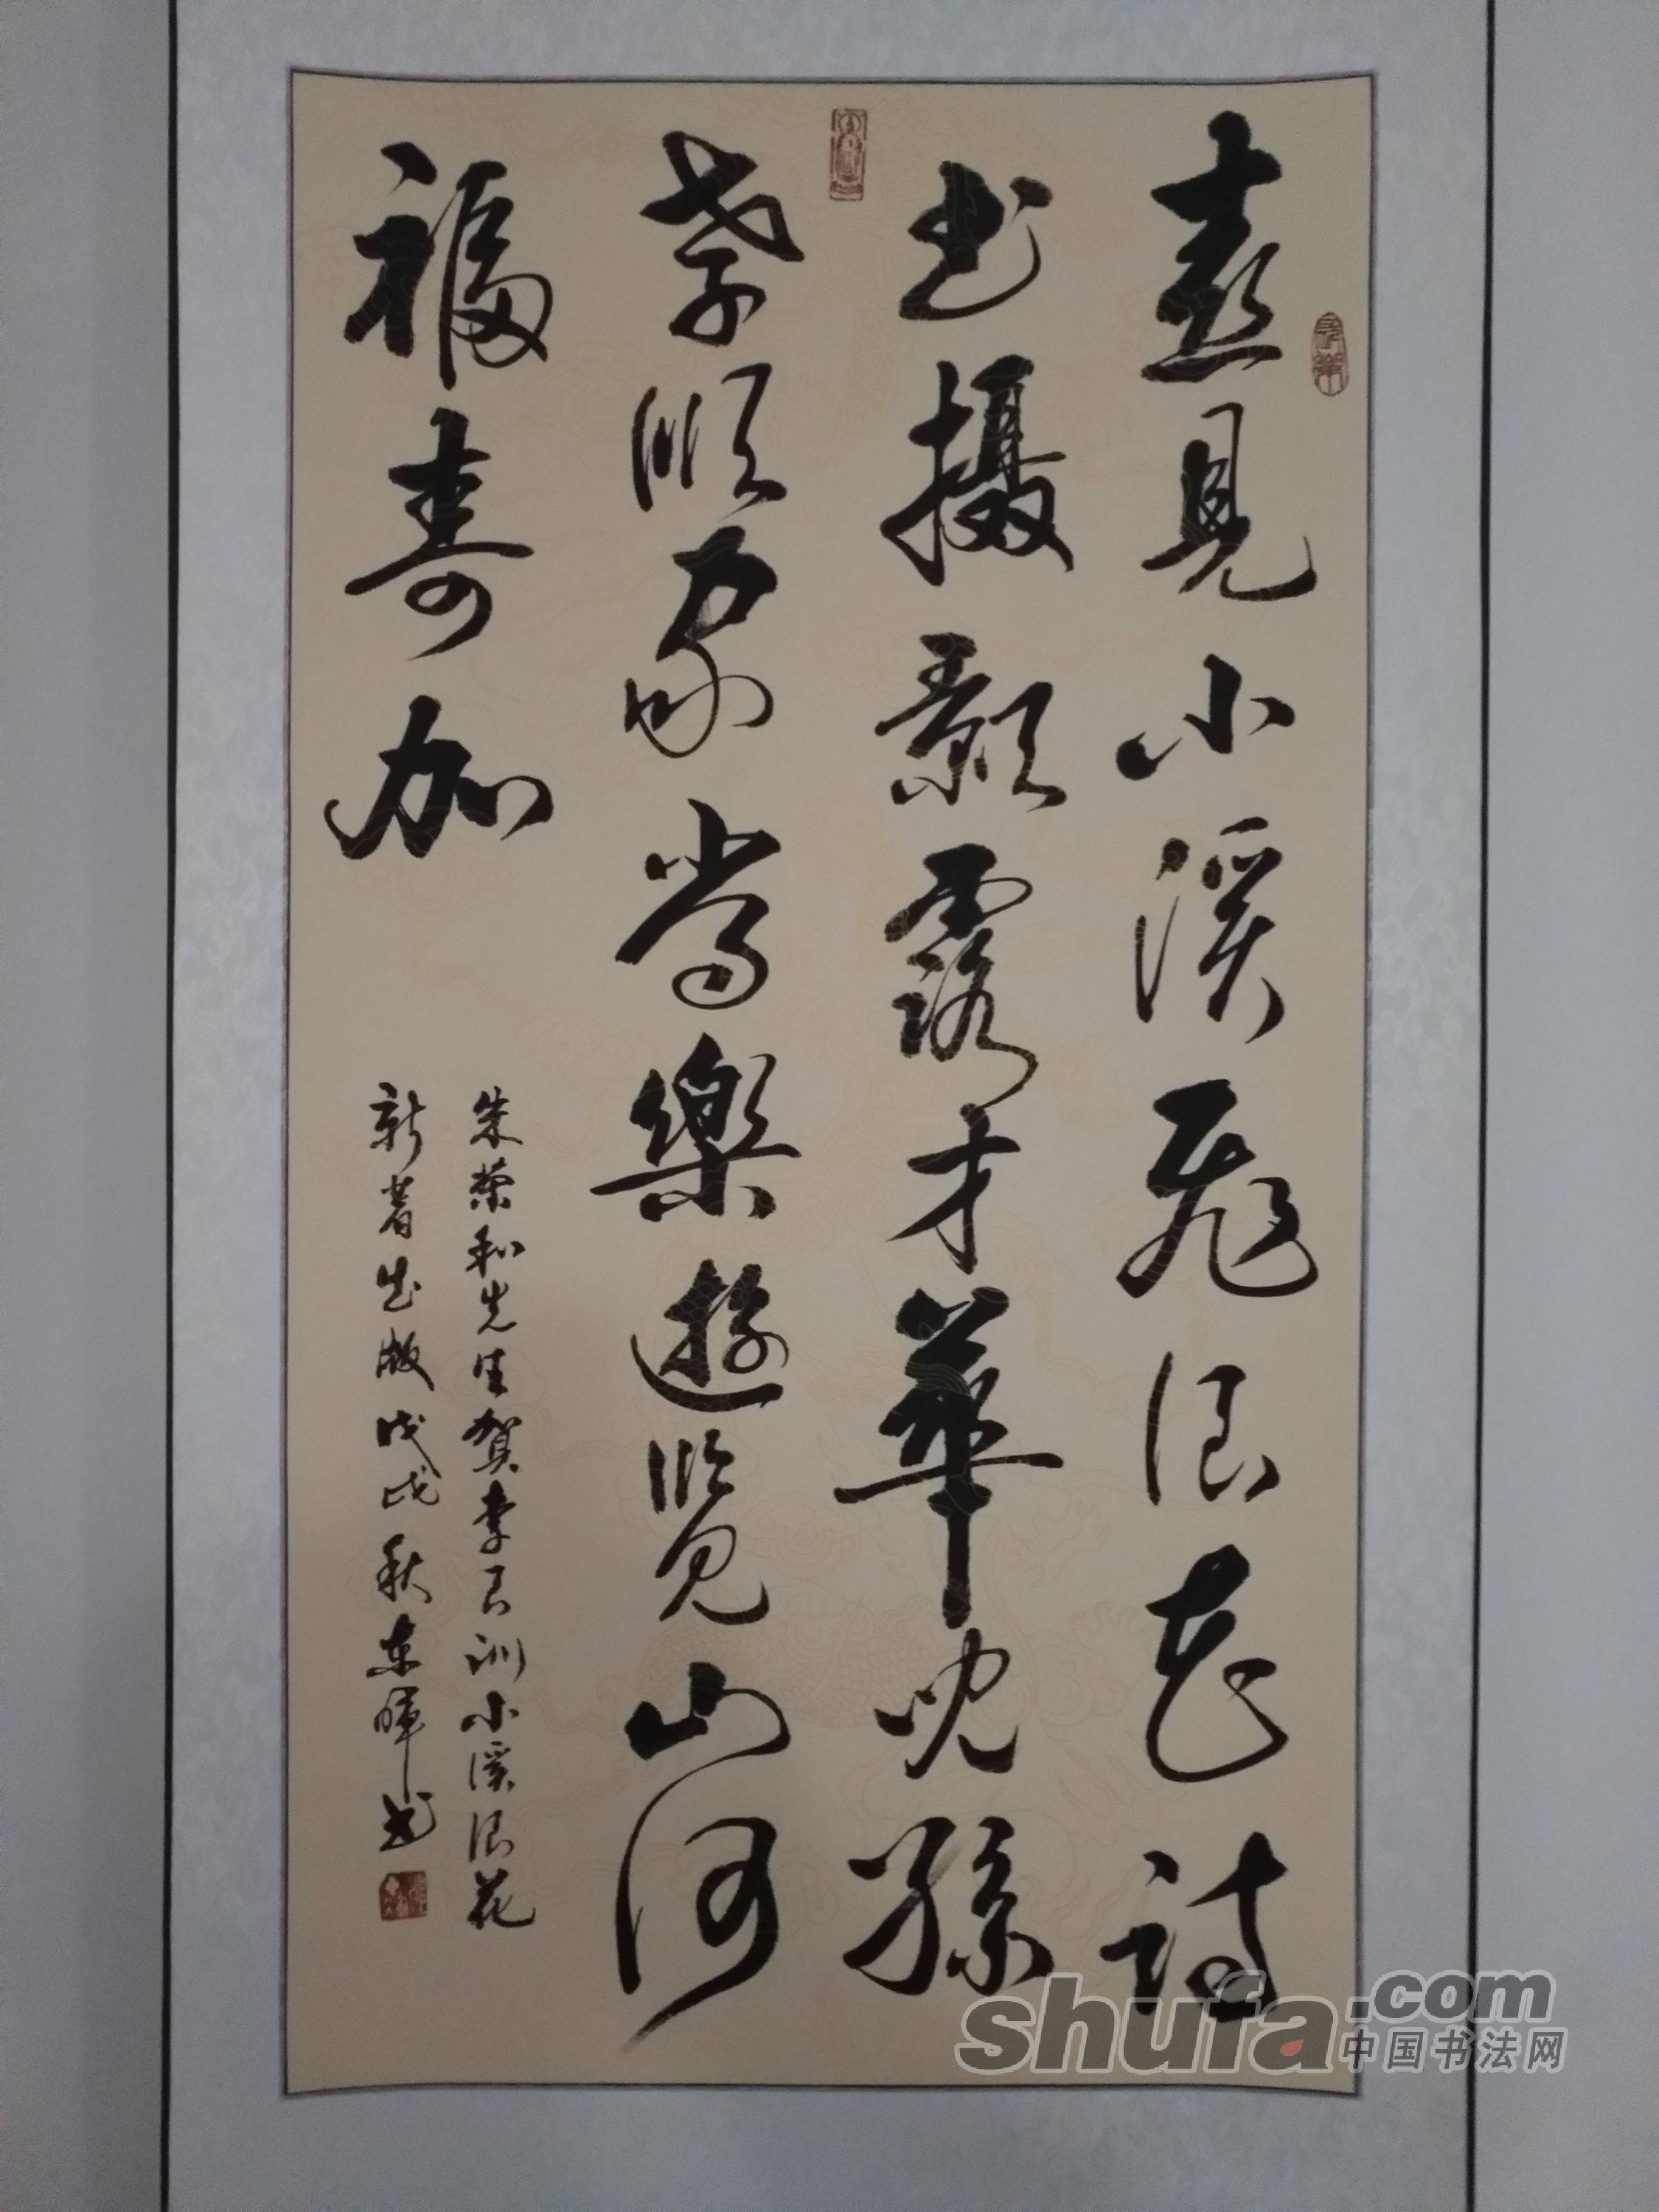 喜見小溪飛浪花詩
书攝顯露才華兒孫
孝順家常樂遊覽山河
福壽加
朱榮和先生贺李召训小溪浪花
新著出版戊戌秋東暉书
shufa.com
中国书法网